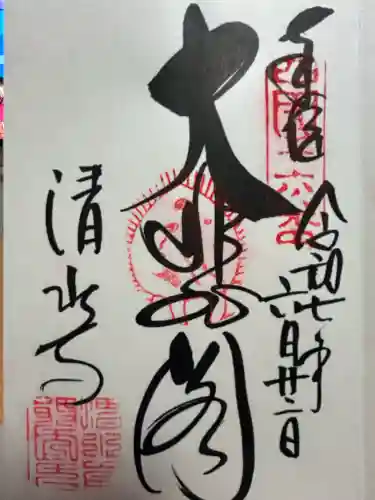 奉拝
令和七年
六月廿二日
大悲閣
清水寺